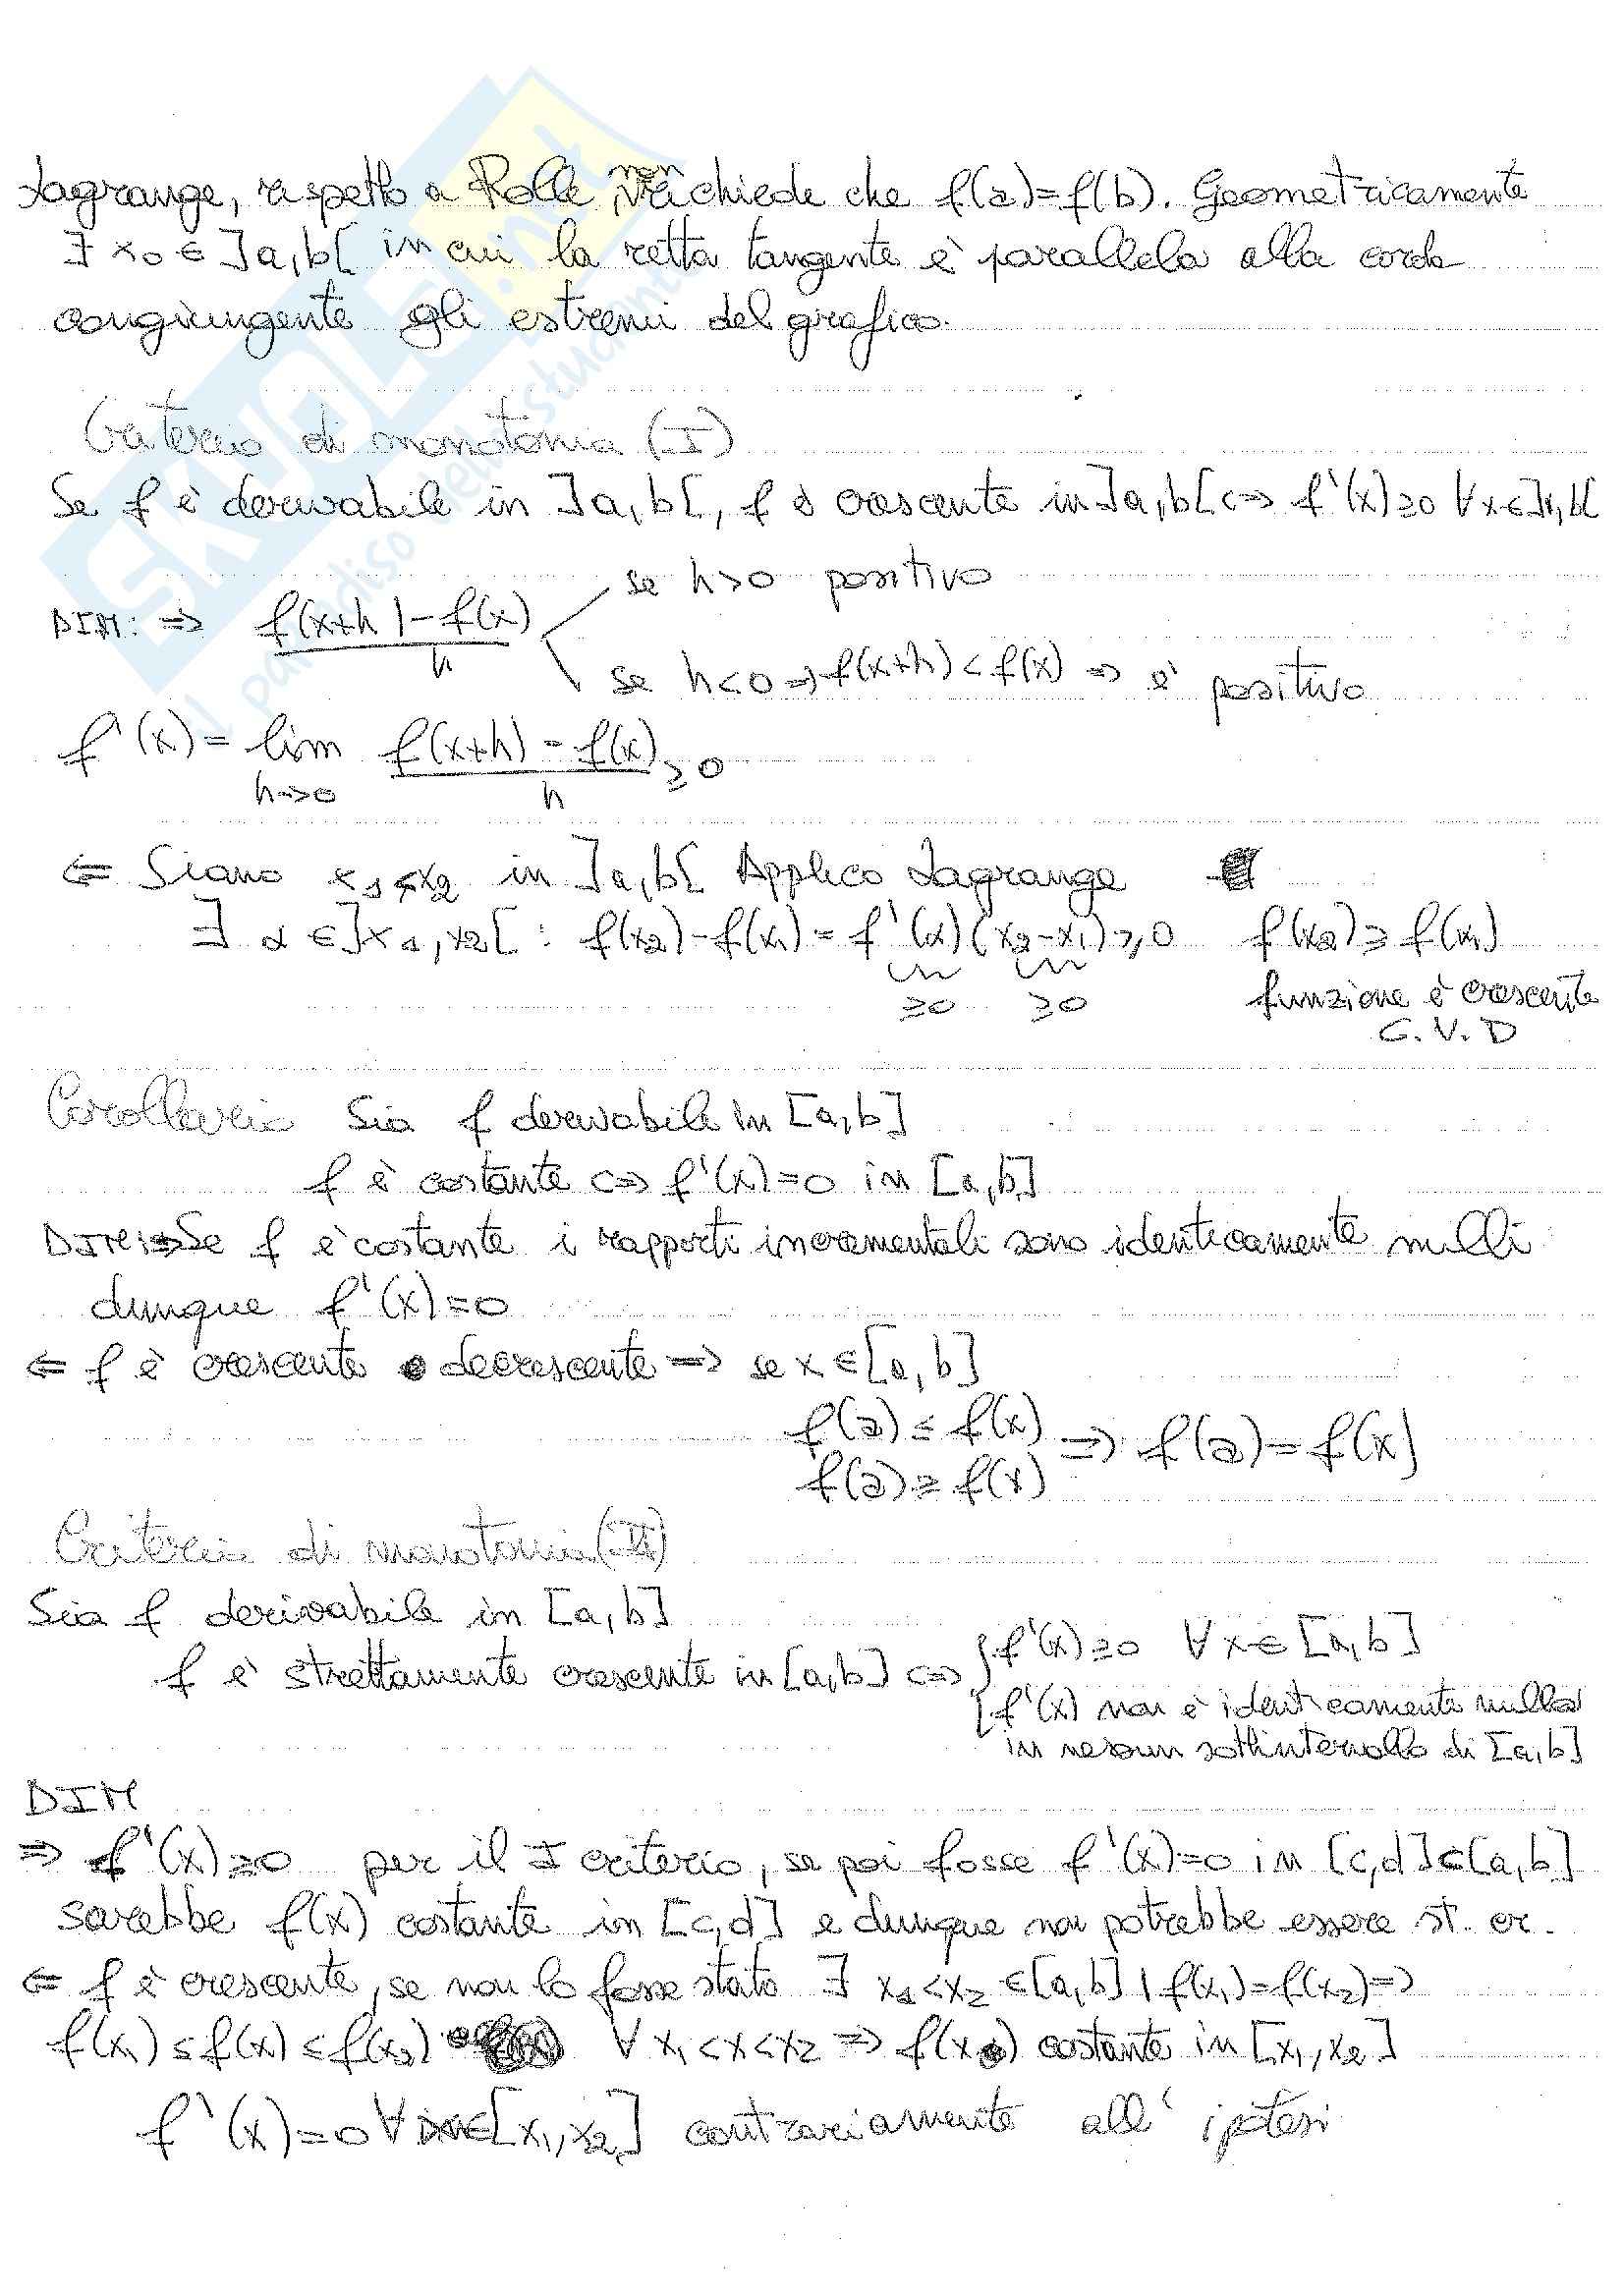 Lagrange, rispetto a Rolle, non richiede che f(a)=f(b). Geometricamente
∃ x₀ ∈ ]a,b[ in cui la retta tangente è parallela alla corda
congiungente gli estremi del grafico.
Criterio di monotonia (I)
Se f è derivabile in ]a,b[, f è crescente in ]a,b[ <=> f'(x)≥0 ∀x∈]a,b[
se h>0 positivo
DIM: => f(x+h)-f(x)
h
se h<0 => f(x+h)<f(x) => è positivo
f'(x) = lim f(x+h)-f(x) ≥0
h->0 h
<= Siano x₁<x₂ in ]a,b[ Applico Lagrange
∃ α ∈]x₁,x₂[ : f(x₂)-f(x₁) = f'(α)(x₂-x₁)≥0 f(x₂)≥f(x₁)
≥0 ≥0 funzione è crescente
C.V.D
Corollario Sia f derivabile in [a,b]
f è costante <=> f'(x)=0 in [a,b]
DIM: => Se f è costante i rapporti incrementali sono identicamente nulli
dunque f'(x)=0
<= f è crescente e decrescente => se x ∈[a,b]
f(a) ≤ f(x)
=> f(a) = f(x)
f(a) ≥ f(x)
Criterio di monotonia (II)
Sia f derivabile in [a,b]
f è strettamente crescente in [a,b] <=> { f'(x)≥0 ∀x∈[a,b]
f'(x) non è identicamente nulla
in nessun sottintervallo di [a,b]
DIM
=> f'(x)≥0 per il I criterio, se poi fosse f'(x)=0 in [c,d]⊂[a,b]
sarebbe f(x) costante in [c,d] e dunque non potrebbe essere st. cr.
<= f è crescente, se non lo fosse stato ∃ x₁<x₂ ∈[a,b] | f(x₁)=f(x₂) =>
f(x₁) ≤ f(x) ≤ f(x₂) ∀ x₁<x<x₂ => f(x) costante in [x₁,x₂]
f'(x)=0 ∀ x∈[x₁,x₂] contrariamente all' ipotesi
SKUOLA.net
Il paradiso degli studenti